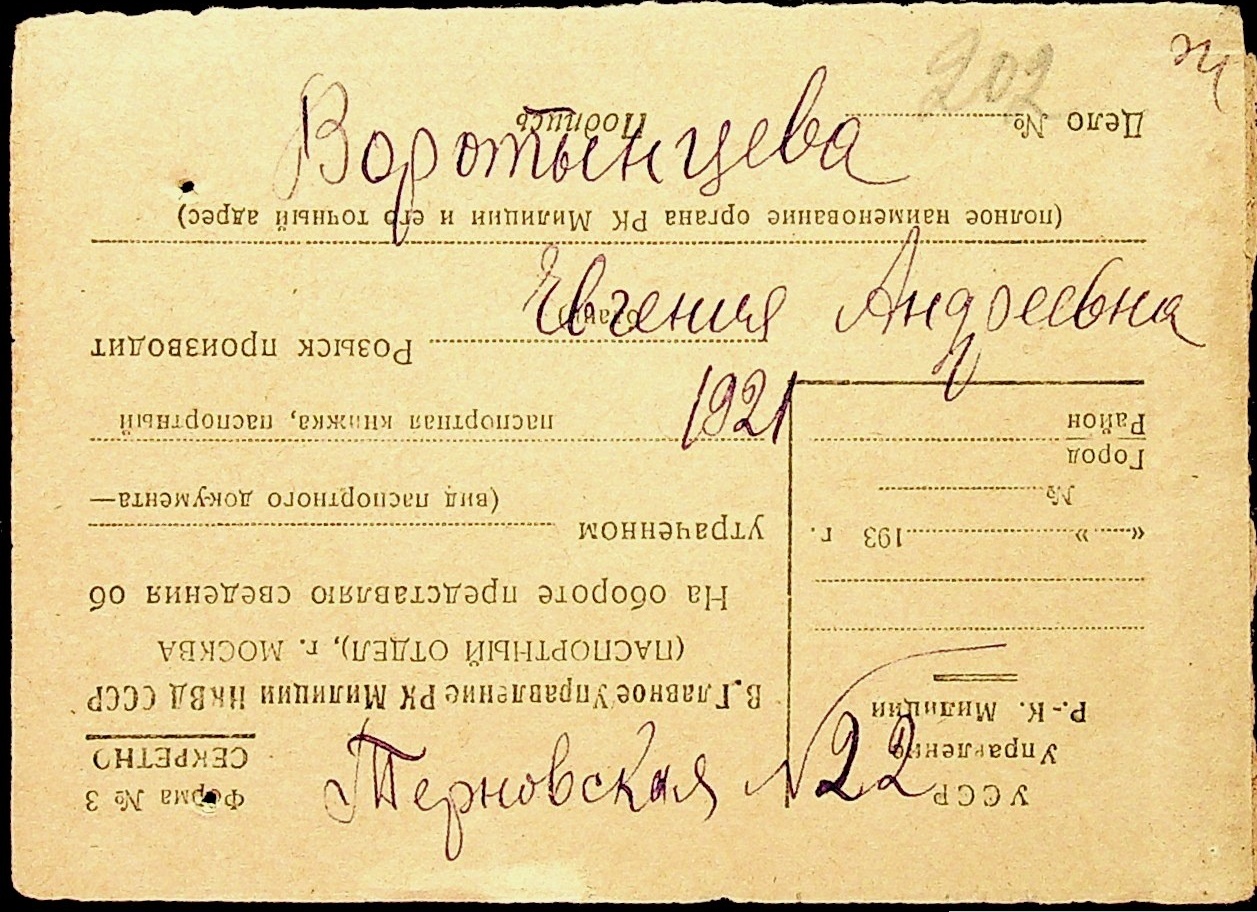 202
Воротынцева
Евгения Андреевна
1921
Терновская № 22
УССР
Управление
Р.-К. Милиции
«......» ............193 г.
№
Город
Район
Дело №
Форма № 3
СЕКРЕТНО
В. Главное Управление РК Милиции НКВД СССР
(ПАСПОРТНЫЙ ОТДЕЛ), г. МОСКВА
На обороте представляю сведения об
утраченном
(вид паспортного документа—
паспортная книжка, паспортный
Розыск производит
(полное наименование органа РК Милиции и его точный адрес)
Подпись